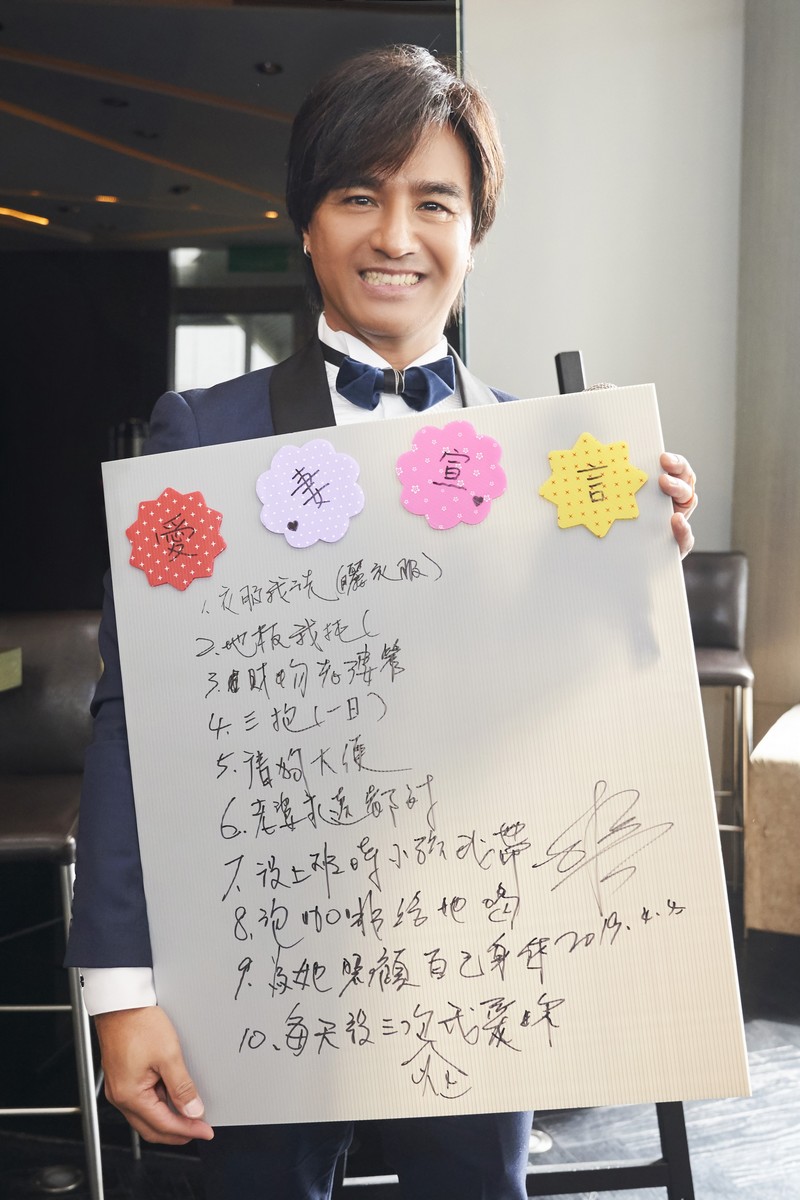 愛妻宣言
1. 衣服我洗(曬衣服)
2. 地板我拖(
3. 財物老婆管
4. 三抱(一日)
5. 清狗大便
6. 老婆永遠都對
7. 沒上班時小孩我帶
8. 泡咖啡給她喝
9. 為她照顧自己身体 2019.4.4
10. 每天說三次我愛妳